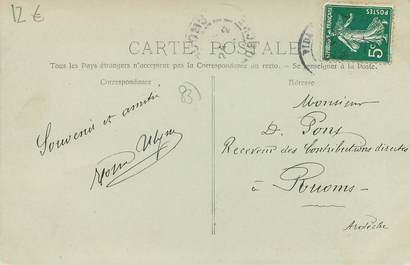 12 €
CARTE POSTALE
Tous les Pays étrangers n'acceptent pas la Correspondance au recto. — Se renseigner à la Poste.
Correspondance
Adresse
POSTES
5c
83)
Souvenir et amitié
Monsieur
D. Pons
Receveur des Contributions directes
à Ruoms
Ardèche